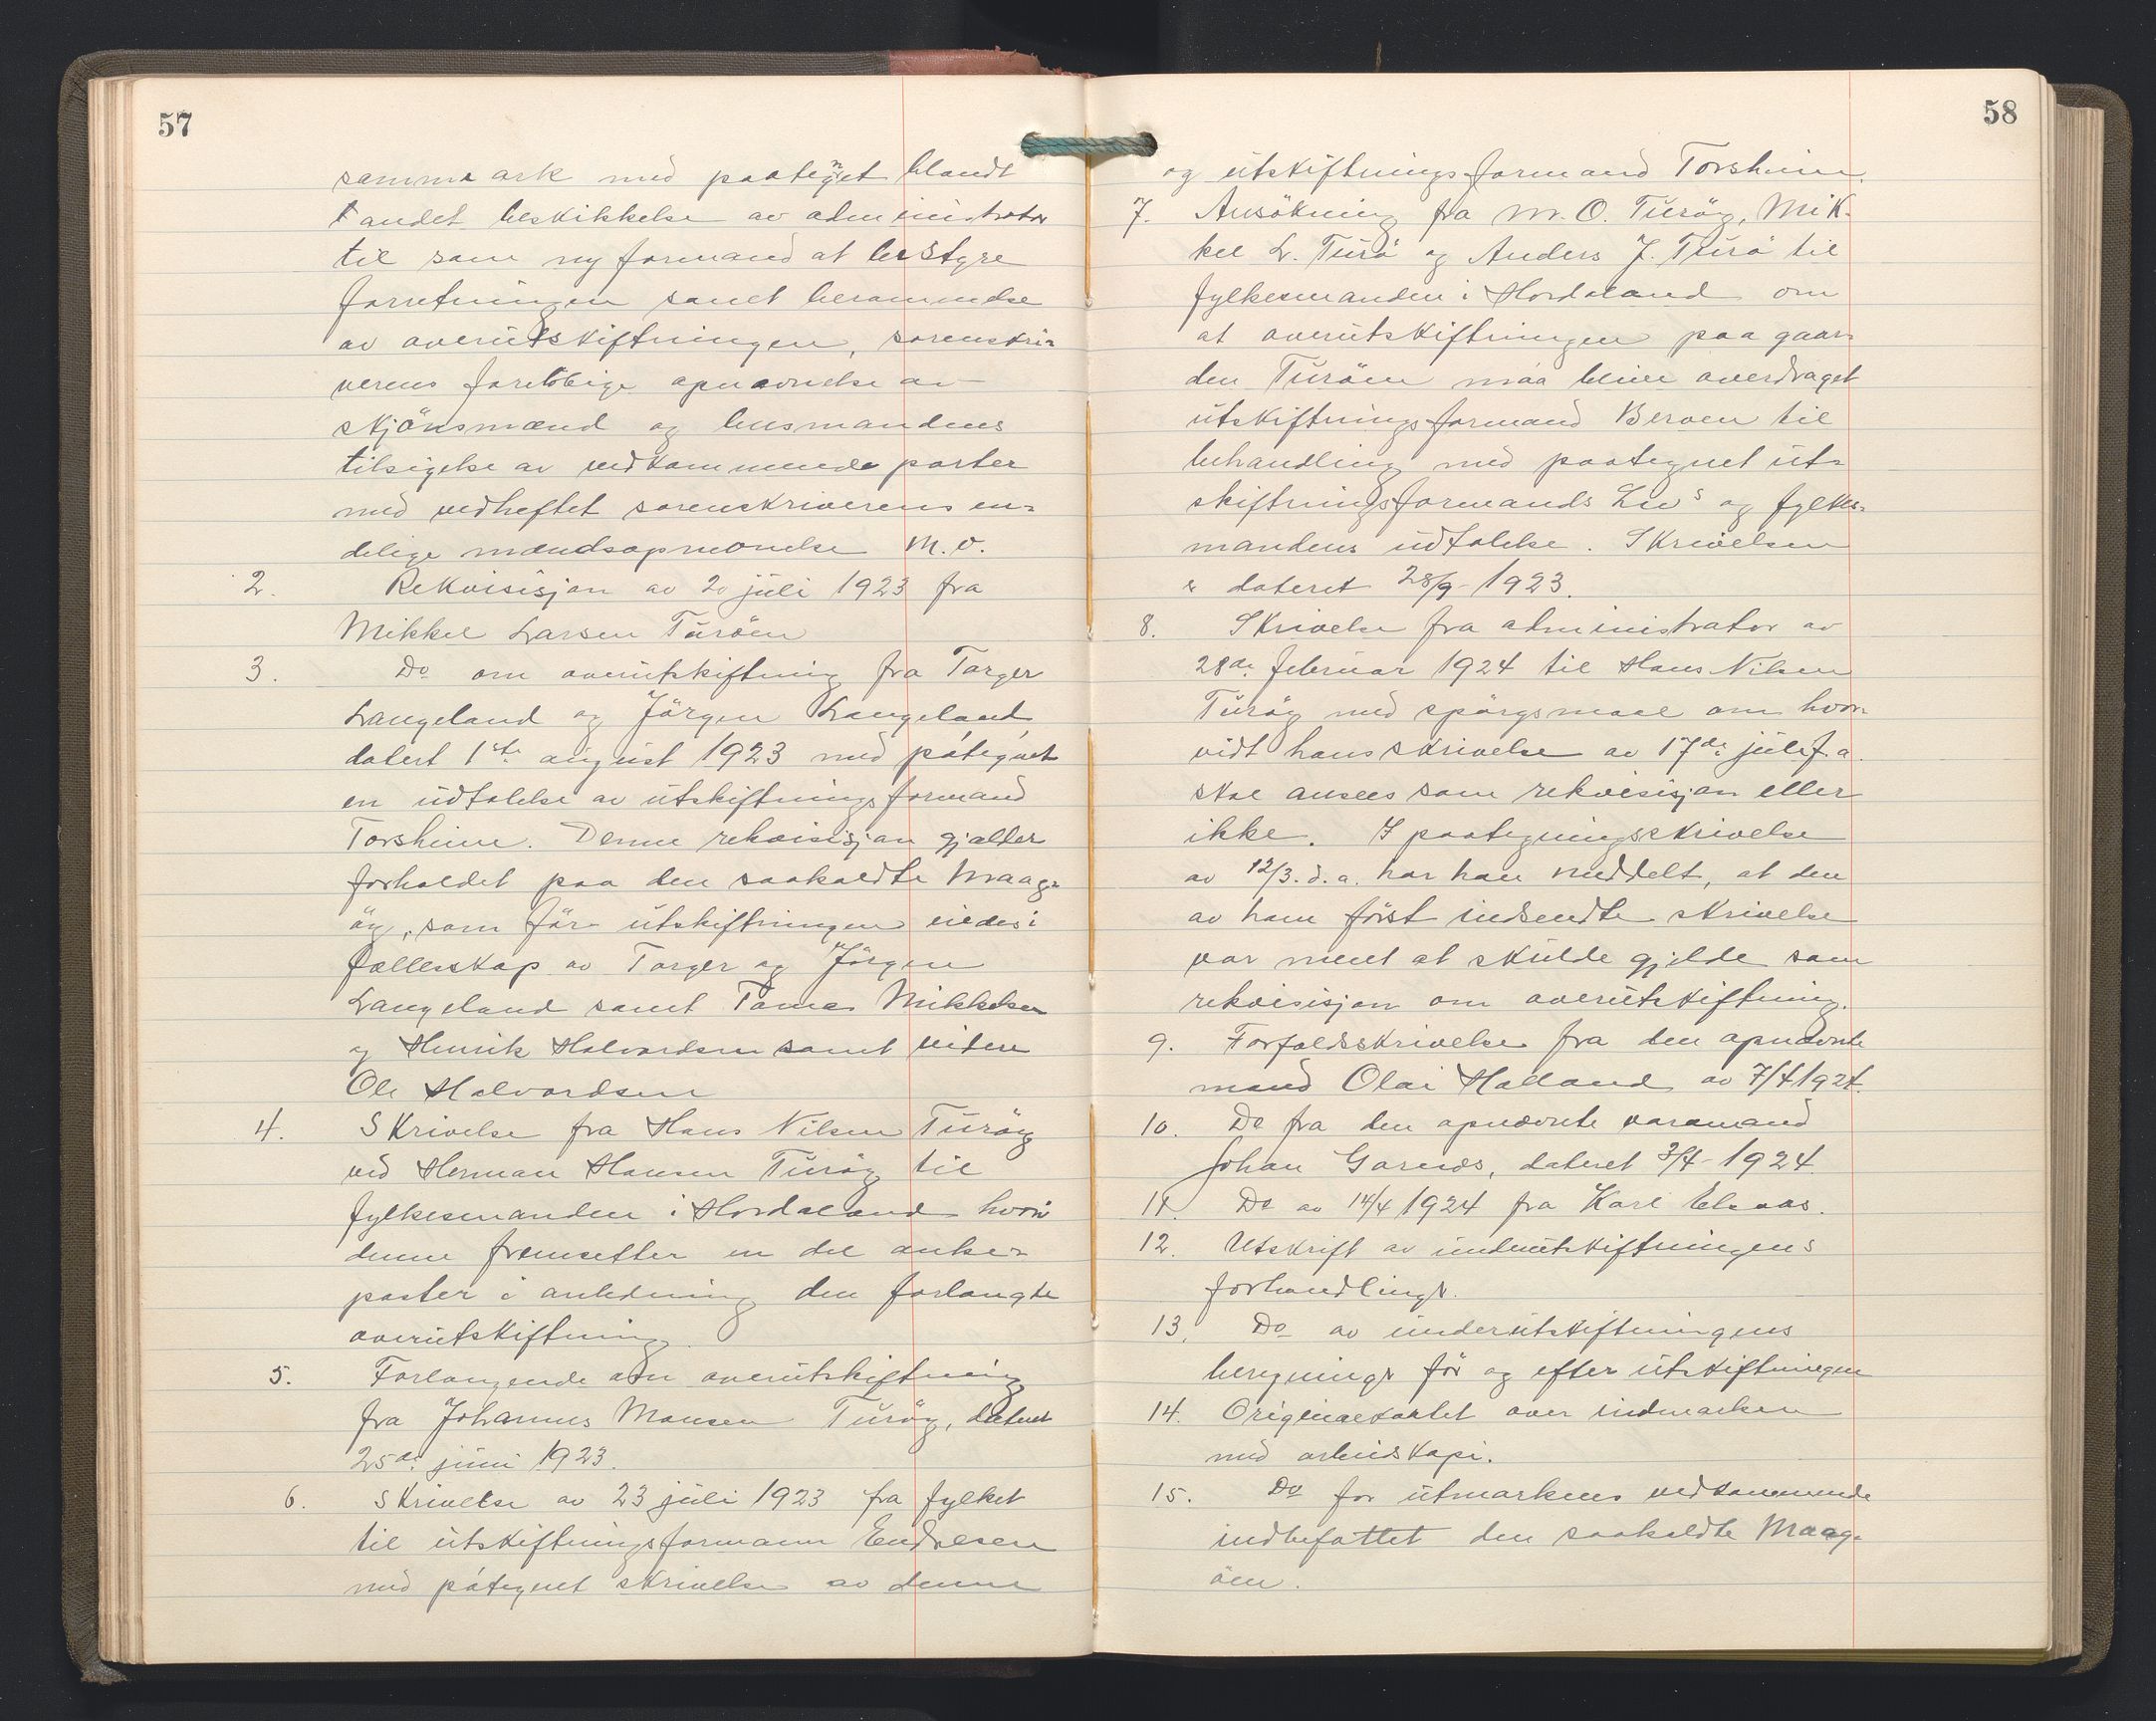 57
samme ark med paategnet blandt
andet beskikkelse av administrator
til som ny formand at bestyre
forretningen samt berammelse
av overutskiftningen, sorenskri-
verens foreløbige opnævnelse av
skjönsmænd og lensmandens
tilsigelse av vedkommende parter
med vedheftet sorenskriverens en-
delige mændsopnævnelse m.v.
2. Rekvisisjon av 20 juli 1923 fra
Mikkel Larsen Turöen
3. Do om overutskiftning fra Torger
Langeland og Jörgen Langeland,
datert 1ste august 1923 med påtegnet
en udtalelse av utskiftningsformand
Torsheim. Denne rekvisisjon gjælder
forholdet paa den saakaldte Maag-
öy, som för utskiftningen eiedes i
fællesskap av Torger og Jörgen
Langeland samt Tomas Mikkelsen
og Henrik Halvardsen samt videre
Ole Halvardsen
4. Skrivelse fra Hans Nilsen Turöy
ved Herman Hansen Turöy til
fylkesmanden i Hordaland hvori
denne fremsetter en del anke-
poster i anledning den forlangte
overutskiftning.
5. Forlangende om overutskiftning
fra Johannes Monsen Turöy, datert
25de juni 1923.
6. Skrivelse av 23 juli 1923 fra fylket
til utskiftningsformann Endresen
med påtegnet skrivelse av denne
58
og utskiftningsformand Torsheim.
7. Ansökning fra M. O. Turöy, Mik-
kel L. Turö og Anders J. Turö til
fylkesmanden i Hordaland om
at overutskiftningen paa gaar-
den Turöen maa bliver overdraget
utskiftningsformand Berven til
behandling med paategnet ut-
skiftningsformands Lies og fylkes-
mandens udtalelse. Skrivelsen
er dateret 28/9-1923.
8. Skrivelse fra administrator av
28de februar 1924 til Hans Nilsen
Turöy med spörgsmaal om hvor-
vidt hans skrivelse av 17de juli f.a.
skal ansees som rekvisisjon eller
ikke. I paategningsskrivelse
av 12/3. d.a. har han meddelt, at den
av ham först indsendte skrivelse
var ment at skulde gjelde som
rekvisisjon om overutskiftning.
9. Forfaldsskrivelse fra den opnævnte
mand Olai Halland av 7/4 1924.
10. Do fra den opnævnte varamand
Johan Garnes, dateret 3/4-1924.
11. Do av 14/4 1924 fra Karl
12. Utskrift av underutskiftningens
forhandlingr.
13. Do av underutskiftningens
beregningr för og efter utskiftningen
14. Originalkartet over indmarken
med arbeidskopi.
15. Do for utmarkens vedkommende
indbefattet den saakaldte Maag-
öen.